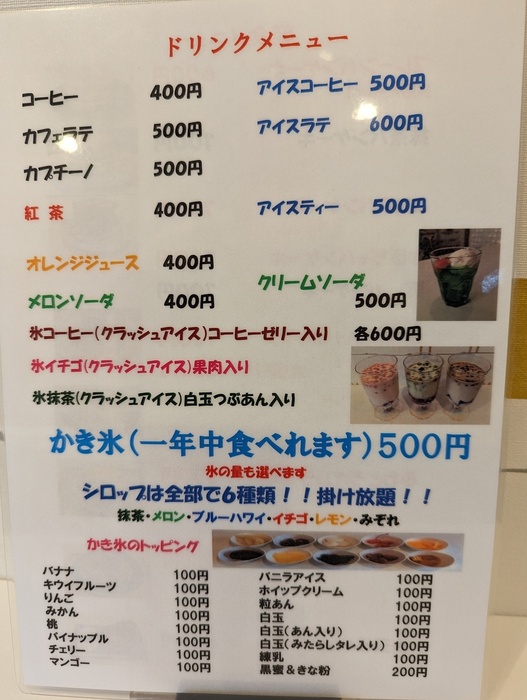 ドリンクメニュー
コーヒー 400円 アイスコーヒー 500円
カフェラテ 500円 アイスラテ 600円
カプチーノ 500円
紅茶 400円 アイスティー 500円
オレンジジュース 400円 クリームソーダ
メロンソーダ 400円 500円
氷コーヒー(クラッシュアイス)コーヒーゼリー入り 各600円
氷イチゴ(クラッシュアイス)果肉入り
氷抹茶(クラッシュアイス)白玉つぶあん入り
かき氷(一年中食べれます)500円
氷の量も選べます
シロップは全部で6種類!!掛け放題!!
抹茶・メロン・ブルーハワイ・イチゴ・レモン・みぞれ
かき氷のトッピング
バナナ 100円
キウイフルーツ 100円
りんご 100円
みかん 100円
桃 100円
パイナップル 100円
チェリー 100円
マンゴー 100円
バニラアイス 100円
ホイップクリーム 100円
粒あん 100円
白玉 100円
白玉(あん入り) 100円
白玉(みたらしタレ入り) 100円
練乳 100円
黒蜜&きな粉 200円